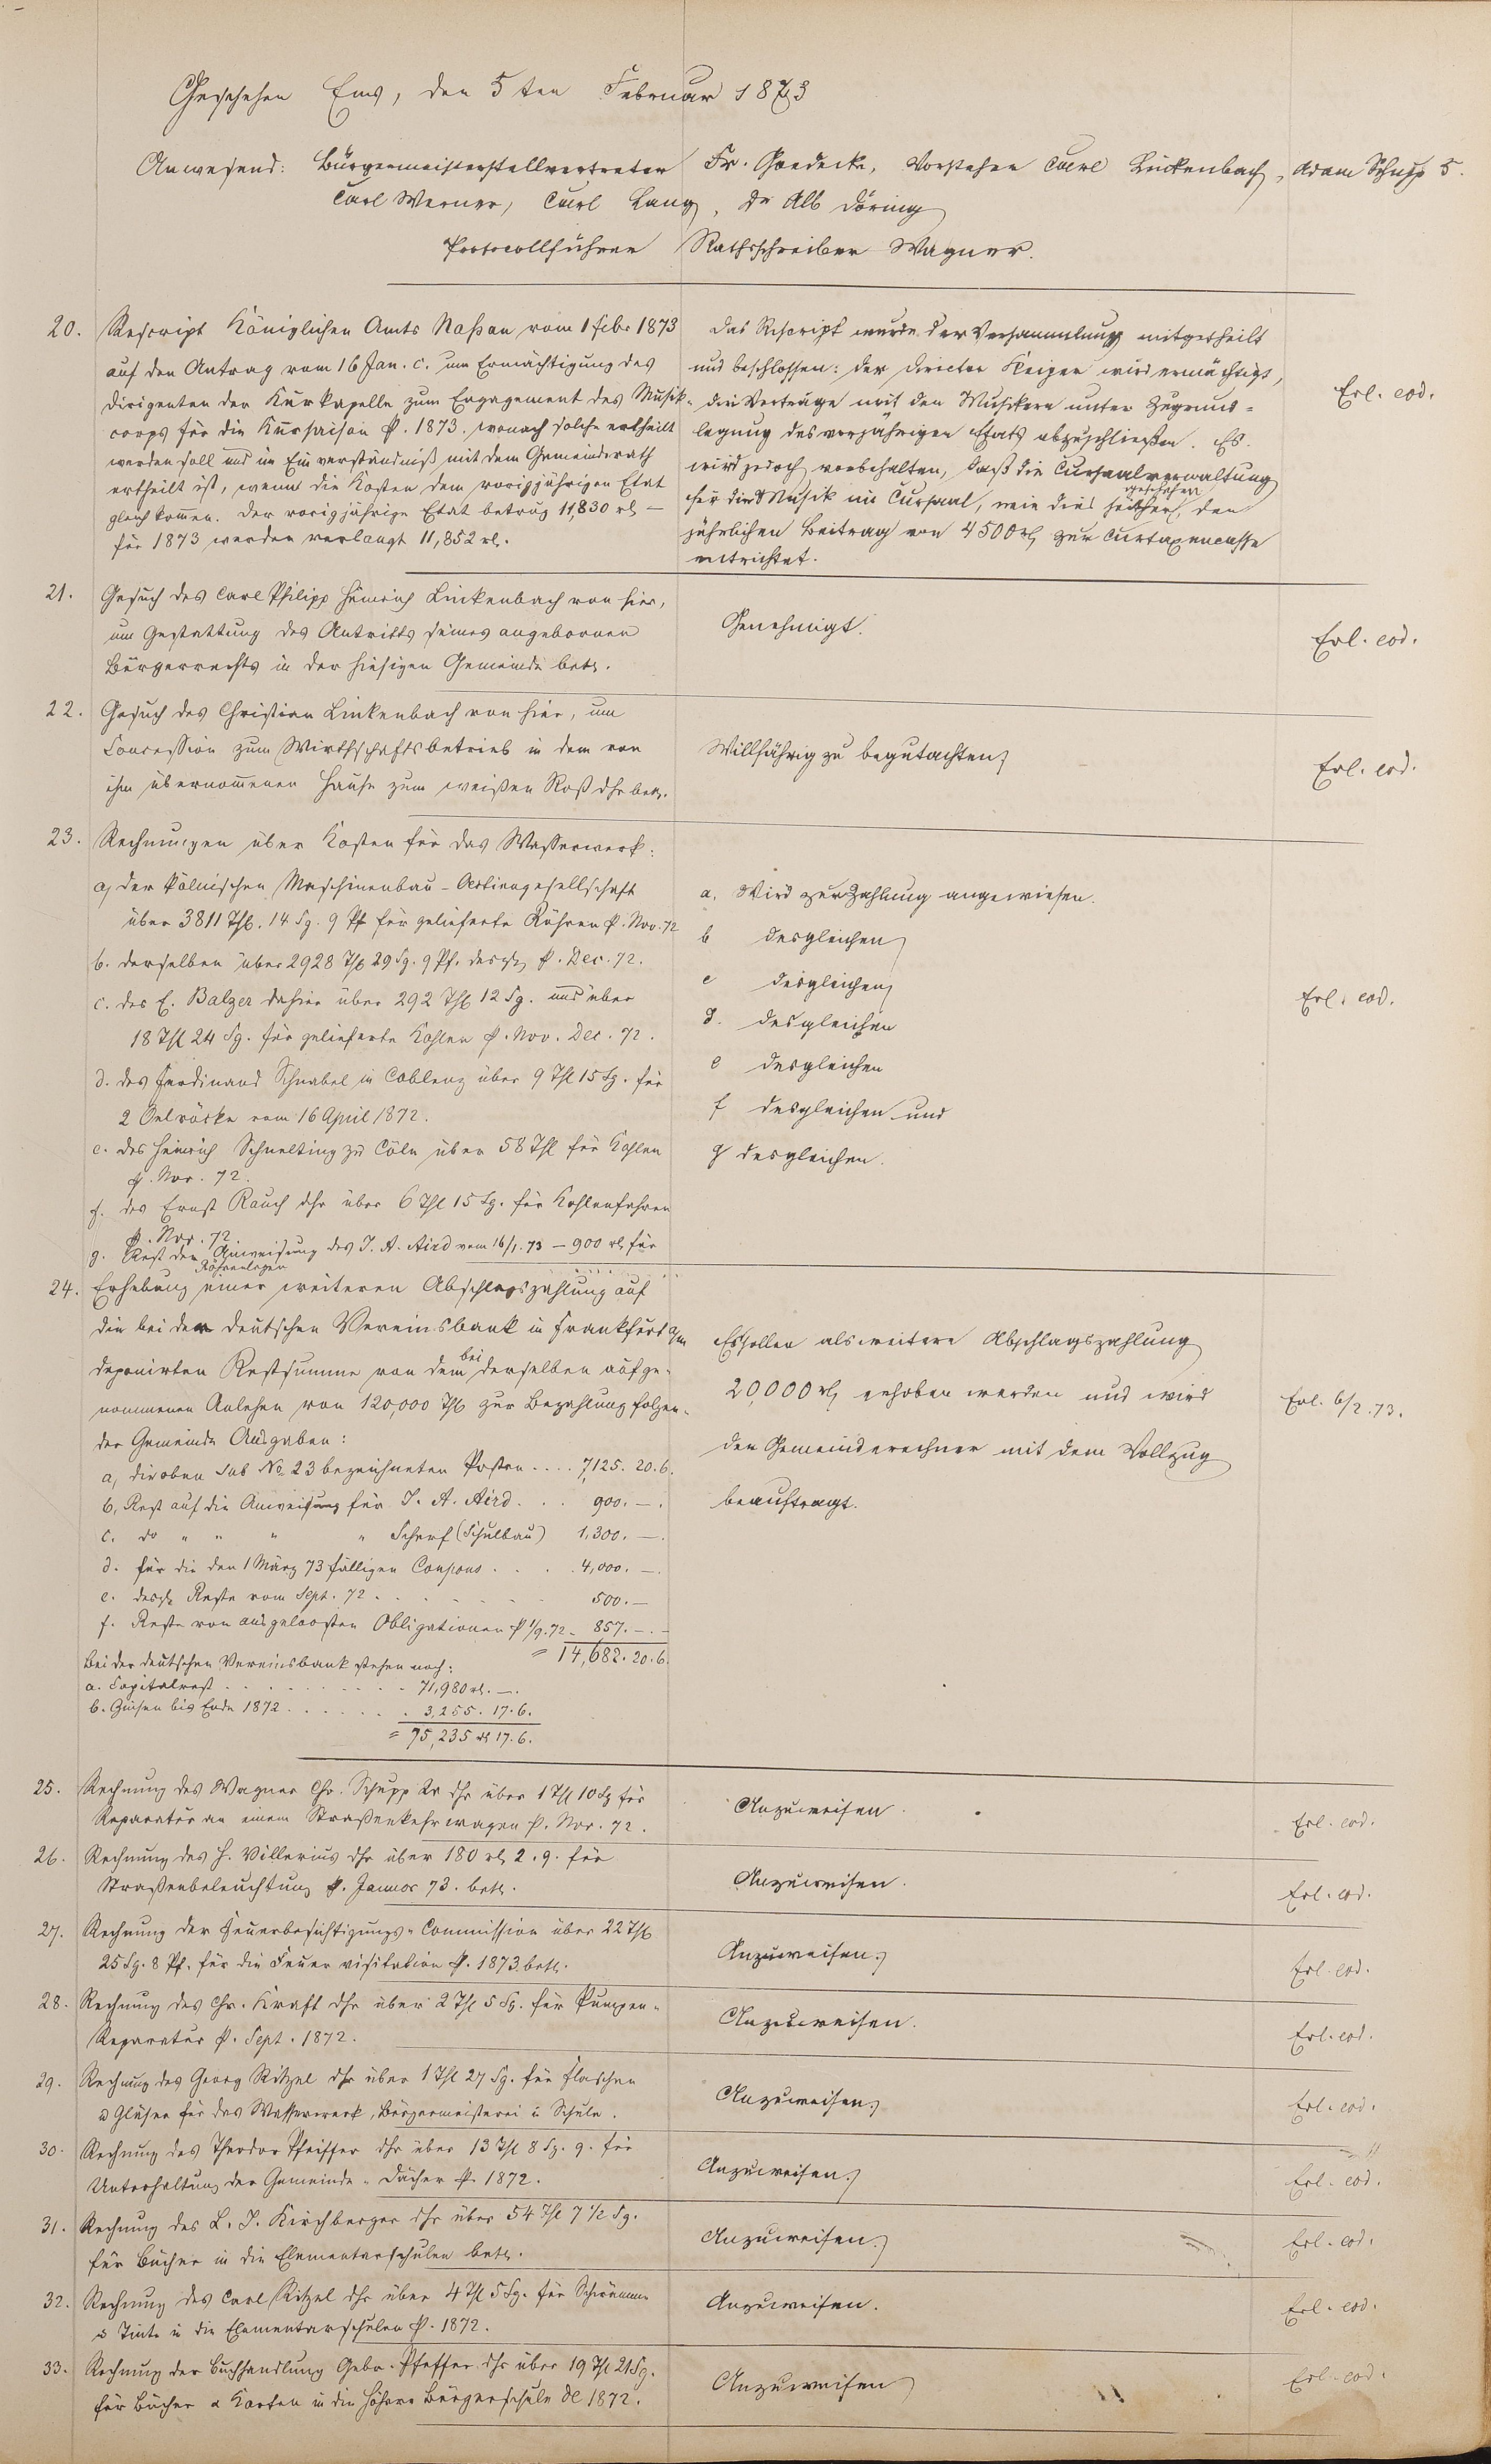 Geschehen Ems, den 5ten Februar 1873
Anwesend: Bürgermeisterstellvertreter Fr. Goedecke, Vorsteher Carl Linkenbach, Adam Schupp 5.
Carl Werner, Carl Lang, Dr Alb Döring
Protocollführer Rathsschreiber Wagner.
20.
Rescript Königlichen Amts Naßau vom 1 Febr 1873
auf den Antrag vom 16 Jan. c. um Ermächtigung des
Dirigenten der Kurkapelle zum Engagement des Musik-
corps für die Kursaison p. 1873. wonach solche ertheilt
werden soll und im Einverständniß mit dem Gemeinderath
ertheilt ist, wenn die Kosten dem vorigjährigen Etat
gleich kommen. Der vorigjährige Etat betrug 11,830 rl –
für 1873 werden verlangt 11,852 rl.
Das Rescript wurde der Versammlung mitgetheilt
und beschlossen: der Director wird ermächtigt,
die Verträge mit den Musikern unter Zugrund-
legung des vorjährigen Etats abzuschließen. Es
wird jedoch vorbehalten, daß die Cursaalverwaltung
für die Musik im Cursaal, wie dies seither geschehen, den
jährlichen Beitrag von 4500 rl zur Curtaxencasse
entrichtet.
Erl. eod.
21.
Gesuch des Carl Philipp Heinrich Linkenbach von hier,
um Gestattung des Antritts seines angebornen
Bürgerrechts in der hiesigen Gemeinde betr.
Genehmigt.
Erl. eod.
22.
Gesuch des Christian Linkenbach von hier, um
Concession zum Wirthschaftsbetrieb in dem von
ihm übernom̄enen Hause zum weißen Roß dhr betr.
Willfährig zu begutachten
Erl. eod.
23.
Rechnungen über Kosten für das Wasserwerk:
a, der Kölnischen Maschinenbau-Actiengesellschaft
über 3811 Thl. 14 Sg. 9 Pf für gelieferte Röhren p. Nov. 72
b. derselben über 2928 Thl 29 Sg. 9 Pf. desgl. p. Dec. 72.
c. des E. Balzer dahier über 292 Thl 12 Sg. und über
18 Thl 24 Sg. für gelieferte Kohlen p. Nov. Dec. 72.
d. des Ferdinand Schnabel in Coblenz über 9 Thl 15 Sg. für
2 Oelröcke vom 16 April 1872.
e. des Heinrich Schmelting zu Cöln über 58 Thl für Kohlen
p. Nov. 72.
f. des Ernst Rauch dhr über 6 Thl 15 Sg. für Kohlenfahren
p. Nov. 72
g. Rest der Anweisung des J. A. Aird vom 16/1. 73 – 900 rl für
Röhrenlegen
a. Wird zur Zahlung angewiesen.
b desgleichen
c desgleichen
d. desgleichen
e desgleichen
f desgleichen und
g desgleichen.
Erl. eod.
24.
Erhebung einer weiteren Abschlagszahlung auf
die bei der deutschen Vereinsbank in Frankfurt a/m
deponirten Restsumme von dem bei derselben aufge-
nommenen Anlehen von 120,000 Thl zur Bezahlung folgen-
der Gemeinde Ausgaben:
a, die oben sub No 23 bezeichneten Posten .... 7,125. 20. 6.
b, Rest auf die Anweisung für J. A. Aird ... 900. –.
c. do " " " " Scherf (Schulbau) 1,300. –.
d. für die den 1 März 73 fälligen Coupons .... 4,000. –.
e. desgl. Reste vom Sept. 72 ...... 500. –
f. Reste von ausgeloosten Obligationen p 1/9. 72 – 857. –. –
= 14,682. 20. 6.
Bei der deutschen Vereinsbank stehen noch:
a. Capitalrest .......... 71,980 rl. –.
b. Zinsen bis Ende 1872 ....... 3,255. 17. 6.
= 75,235 rl 17. 6.
Es sollen als weitere Abschlagszahlung
20,000 rl erhoben werden und wird
der Gemeinderechner mit dem Vollzug
beauftragt.
Erl. 6/2. 73.
25.
Rechnung des Wagner Chr. Schupp 2r dhr über 1 Thl 10 Sg für
Reparatur an einem Straßenkehrwagen p. Nov. 72.
Anzuweisen.
Erl. eod.
26.
Rechnung des H. Villerius dhr über 180 rl 2. 9. für
Straßenbeleuchtung p. Januar 73. betr.
Anzuweisen.
Erl. eod.
27.
Rechnung der Feuerbesichtigungs-Commission über 22 Thl
25 Sg. 8 Pf. für die Feuervisitation p. 1873 betr.
Anzuweisen.
Erl. eod.
28.
Rechnung des Chr. Kraft dhr über 2 Thl 5 Sg. für Pumpen-
Reparatur p. Sept. 1872.
Anzuweisen.
Erl. eod.
29.
Rechnung des Georg Ritzel dhr über 1 Thl 27 Sg. für Flaschen
u Gläser für das Wasserwerk, Bürgermeisterei u Schule.
Anzuweisen.
Erl. eod.
30.
Rechnung des Theodor Pfeiffer dhr über 13 Thl 8 Sg. 9. für
Unterhaltung der Gemeinde-Dächer p. 1872.
Anzuweisen.
Erl. eod.
31.
Rechnung des L. J. Kirchberger dhr über 54 Thl 7 1/2 Sg.
für Bücher in die Elementarschulen betr.
Anzuweisen.
Erl. eod.
32.
Rechnung des Carl Ritzel dhr über 4 Thl 5 Sg. für Schwämme
u Tinte in die Elementarschulen p. 1872.
Anzuweisen.
Erl. eod.
33.
Rechnung der Buchhandlung Gebr. Pfeffer dhr über 19 Thl 21 Sg.
für Bücher u Karten in die höhere Bürgerschule de 1872.
Anzuweisen
Erl. eod.